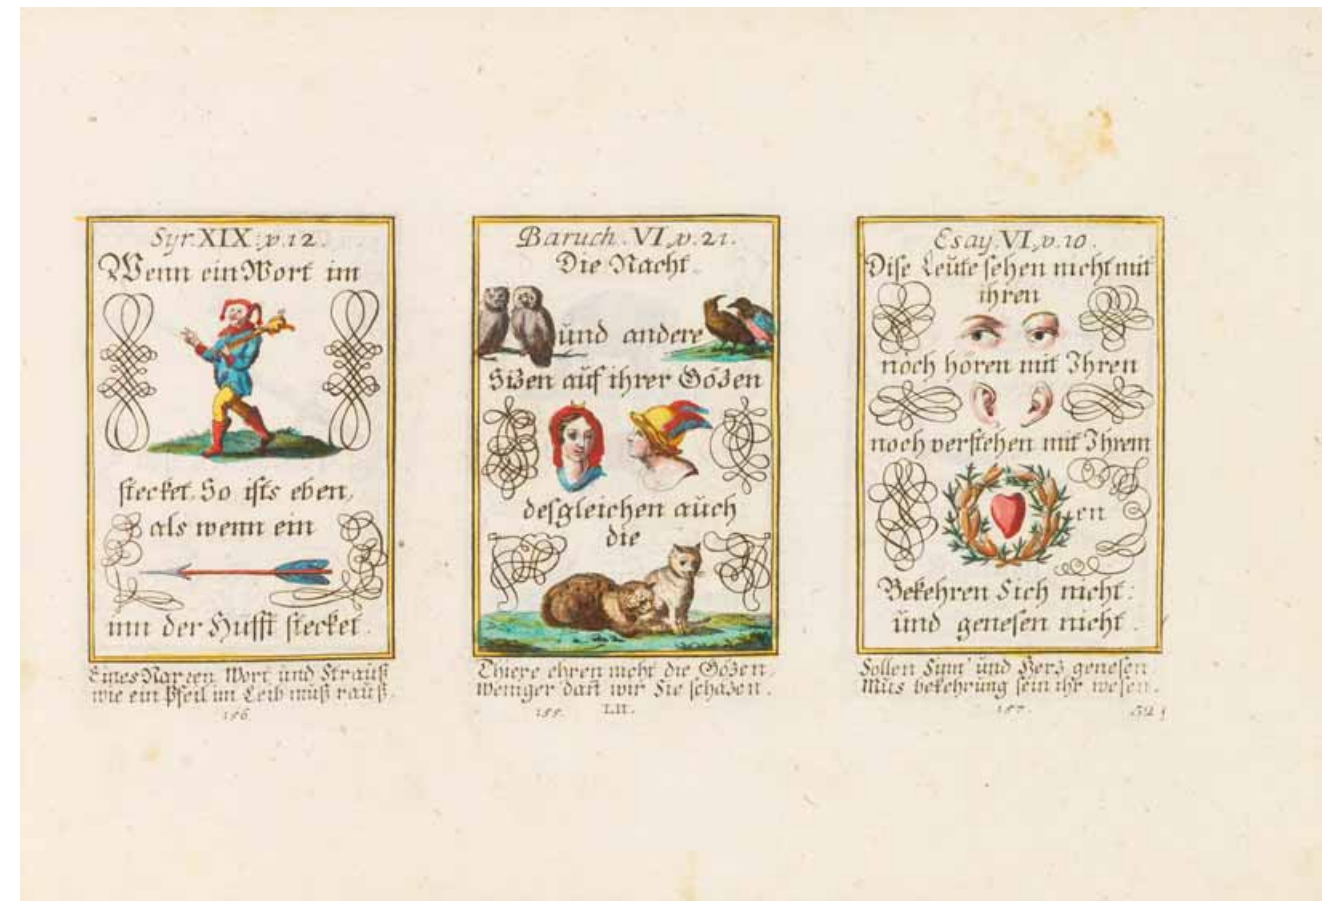 Syr. XIX. v. 12.
Wenn ein Wort im
stecket. So ists eben,
als wenn ein
inn der Hufft stecket.
Eines Narren Wort und Strauß
wie ein Pfeil im Leib muß rauß.
156.
Baruch. VI. v. 21.
Die Nacht
und andere
Sizen auf ihrer Gözen
desgleichen auch
die
Thiere ehren nicht die Gözen,
Weniger dan wir Sie schäzen.
155. LII.
Esay. VI. v. 10.
Dise Leute sehen nicht mit
ihren
noch hören mit Ihren
noch verstehen mit Ihrem
en
Bekehren Sich nicht:
und genesen nicht.
Sollen Sinn und Herz genesen
Mus bekehrung sein ihr wesen.
157.